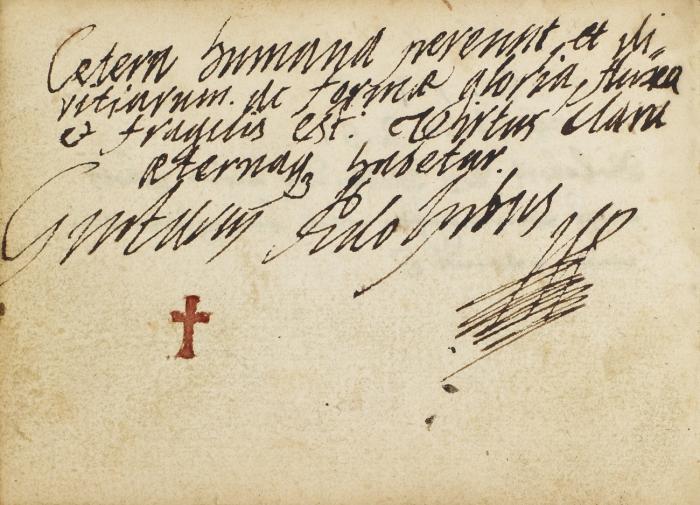 Cetera humana pereunt et di-
vitiarum. ac formæ gloria, fluxa
& fragilis est. Virtus clara
æternaq₃ habetur.
Gustavus